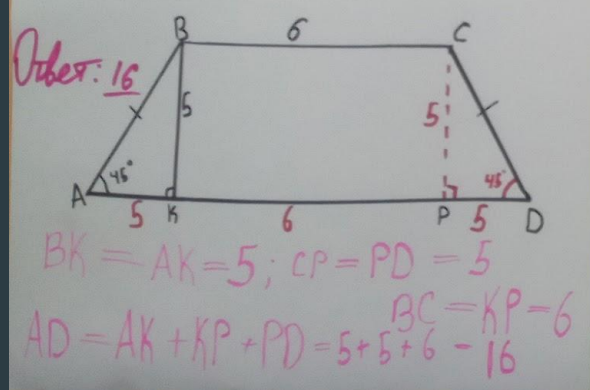 B 6 C
Ответ: 16
5 5
A 45° 45°
5 K 6 P 5 D
BK = AK = 5; CP = PD = 5
BC = KP = 6
AD = AK + KP + PD = 5 + 5 + 6 - 16